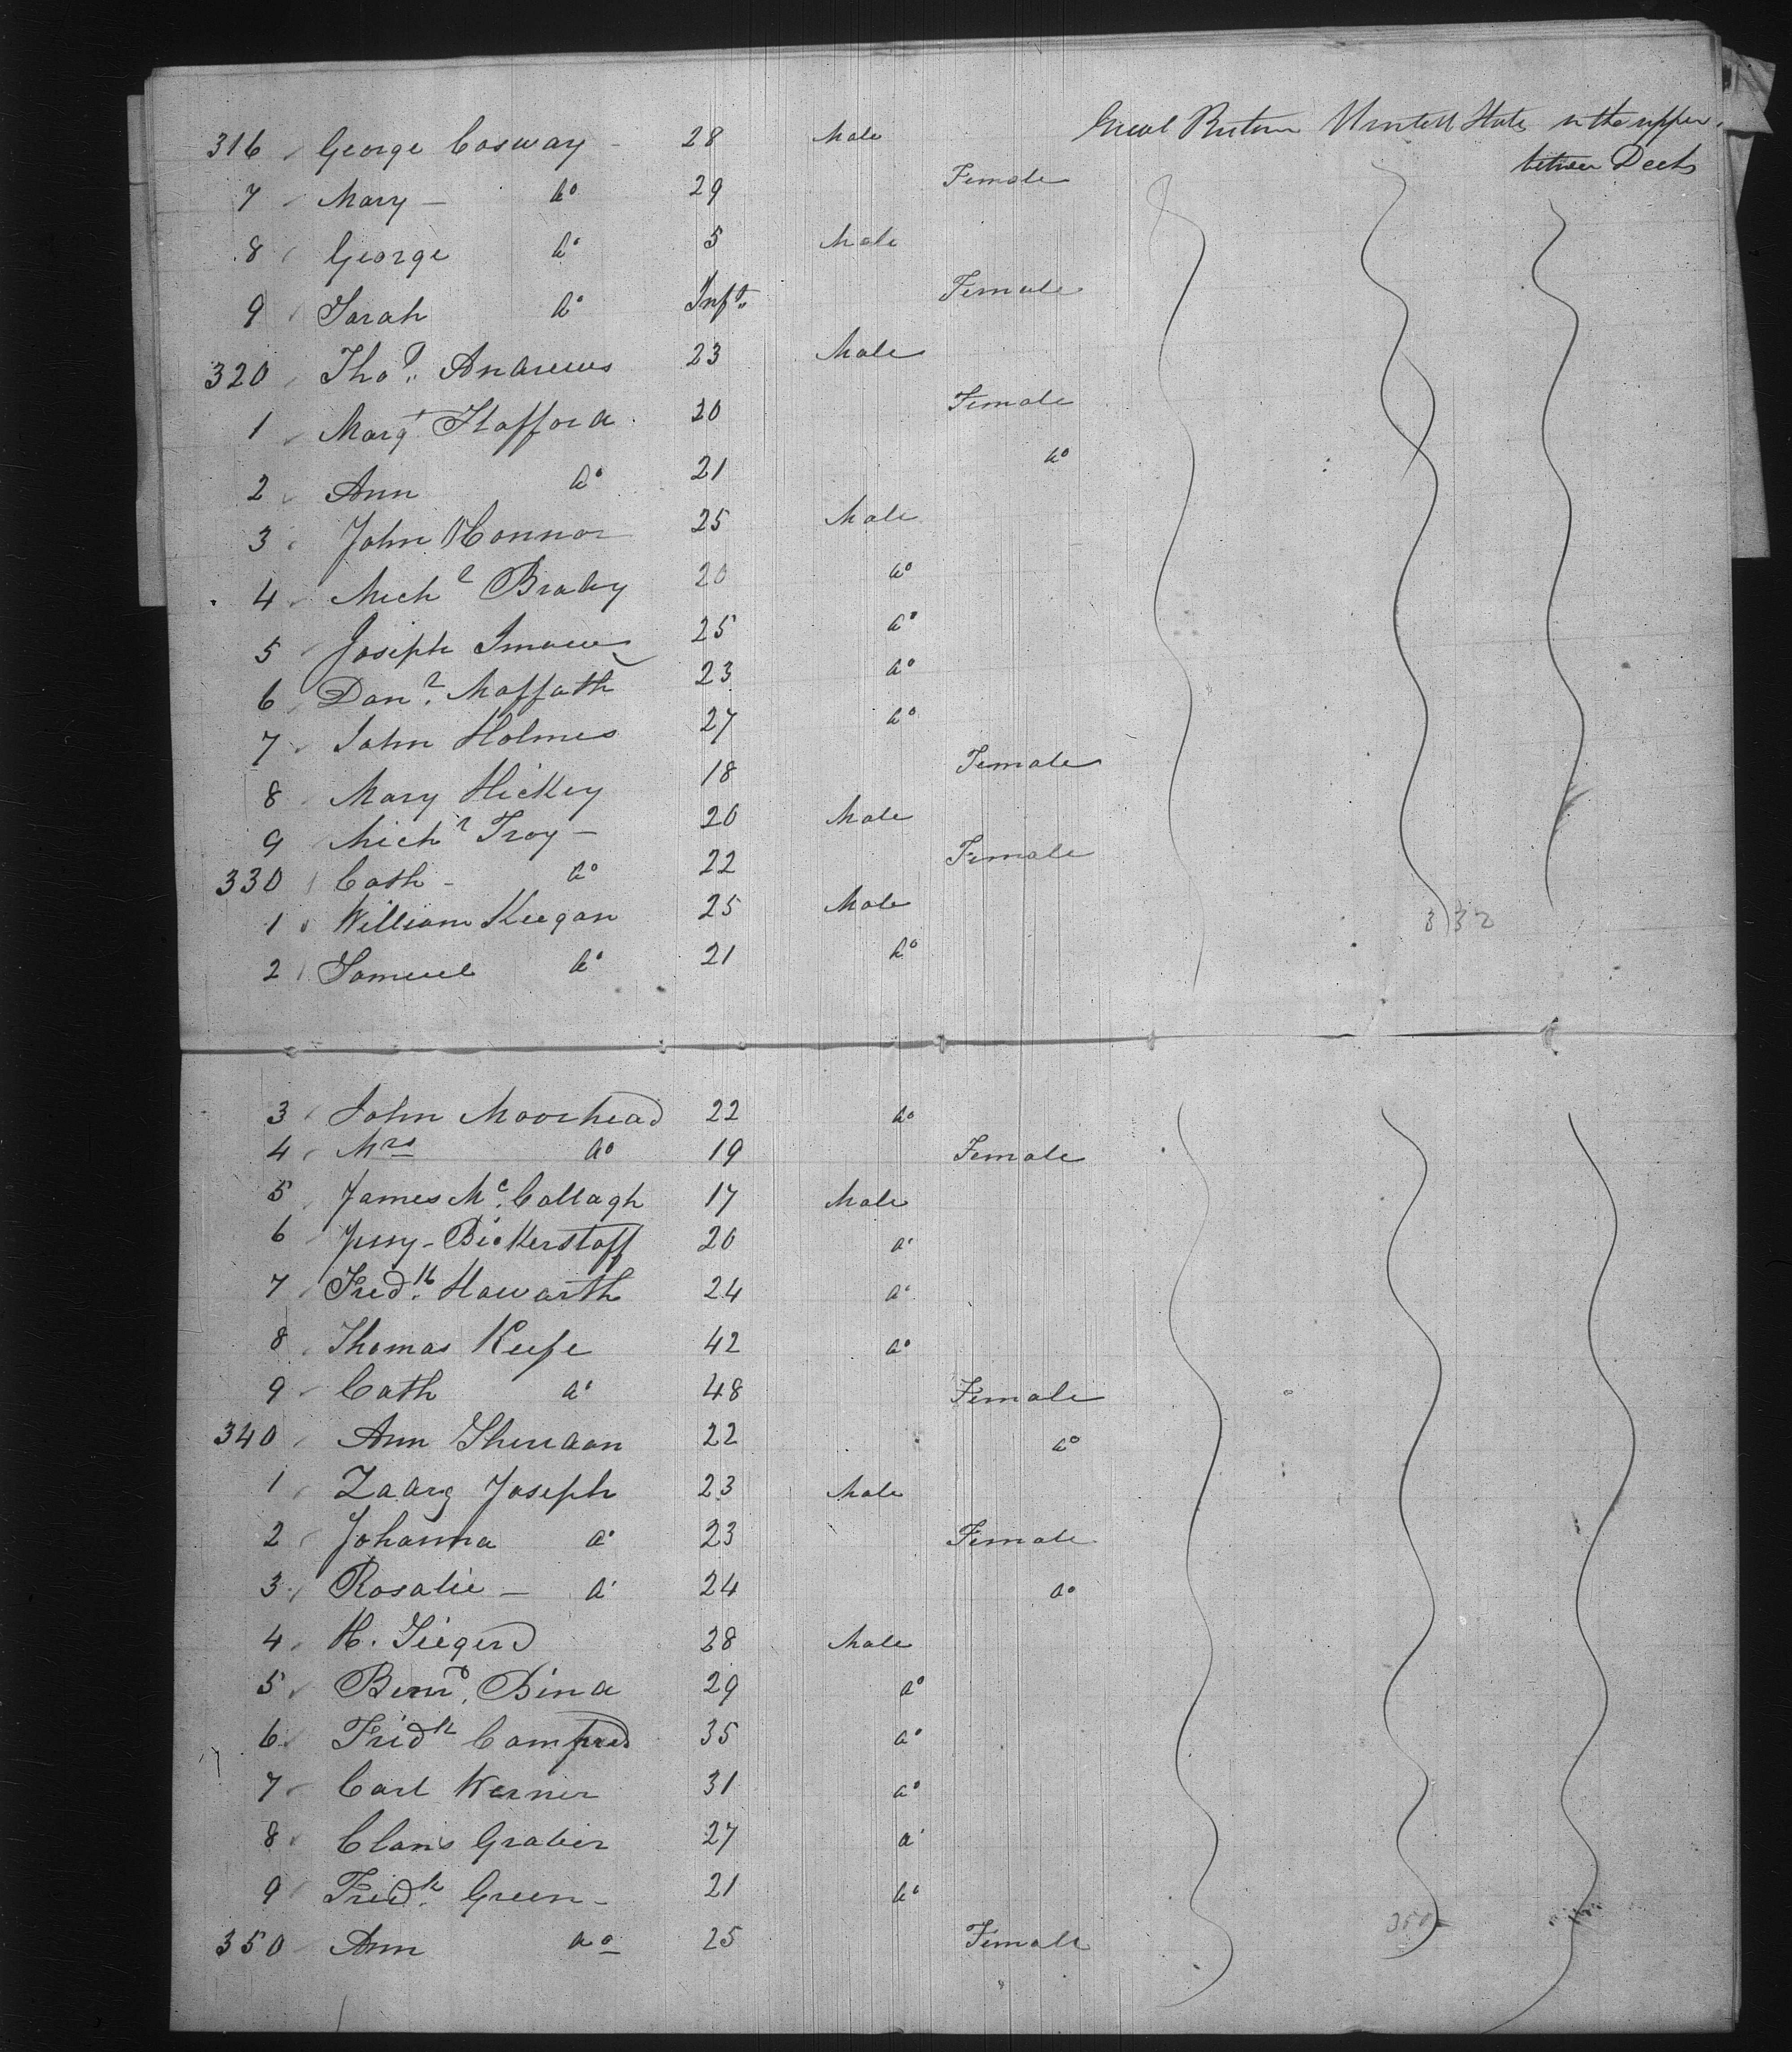 316 George Cosway - 28 Male Great Britain United States in the upper
between Decks
7 Mary - do 29 Female
8 George do 5 Male
9 Sarah do Inft. Female
320 Thos. Andrews 23 Male
1 Margt Stafford 20 Female
2 Ann do 21 do
3 John OConnor 25 Male
4 Michl Brady 20 do
5 Joseph 25 do
6 Danl. Moffath 23 do
7 John Holmes 27 do
8 Mary Hickey 18 Female
9 Michl Troy - 20 Male
330 Cath - do 22 Female
1 William Keegan 25 Male
332
2 Samuel do 21 do
3 John Moorhead 22 do
4 Mrs do 19 Female
5 James Mc. Collagh 17 Male
6 Bickerstaff 20 do
7 Fredk. Howarth 24 do
8 Thomas Keefe 42 do
9 Cath do 48 Female
340 Ann Sheridan 22 do
1 Joseph 23 Male
2 Johanna do 23 Female
3 Rosalie - do 24 do
4 H. Siegerd 28 Male
5 Bernd. Bina 29 do
6 Fredk 35 do
7 Carl Werner 31 do
8 Claus Graber 27 do
9 Fredk. Green - 21 do
350
350 Ann do 25 Female